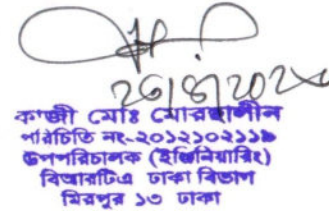 ২৫/৪/২০২৪
কাজী মোঃ মোরছালীন
পরিচিতি নং-২০১২১০২১১৯
উপপরিচালক (ইঞ্জিনিয়ারিং)
বিআরটিএ ঢাকা বিভাগ
মিরপুর ১৩ ঢাকা